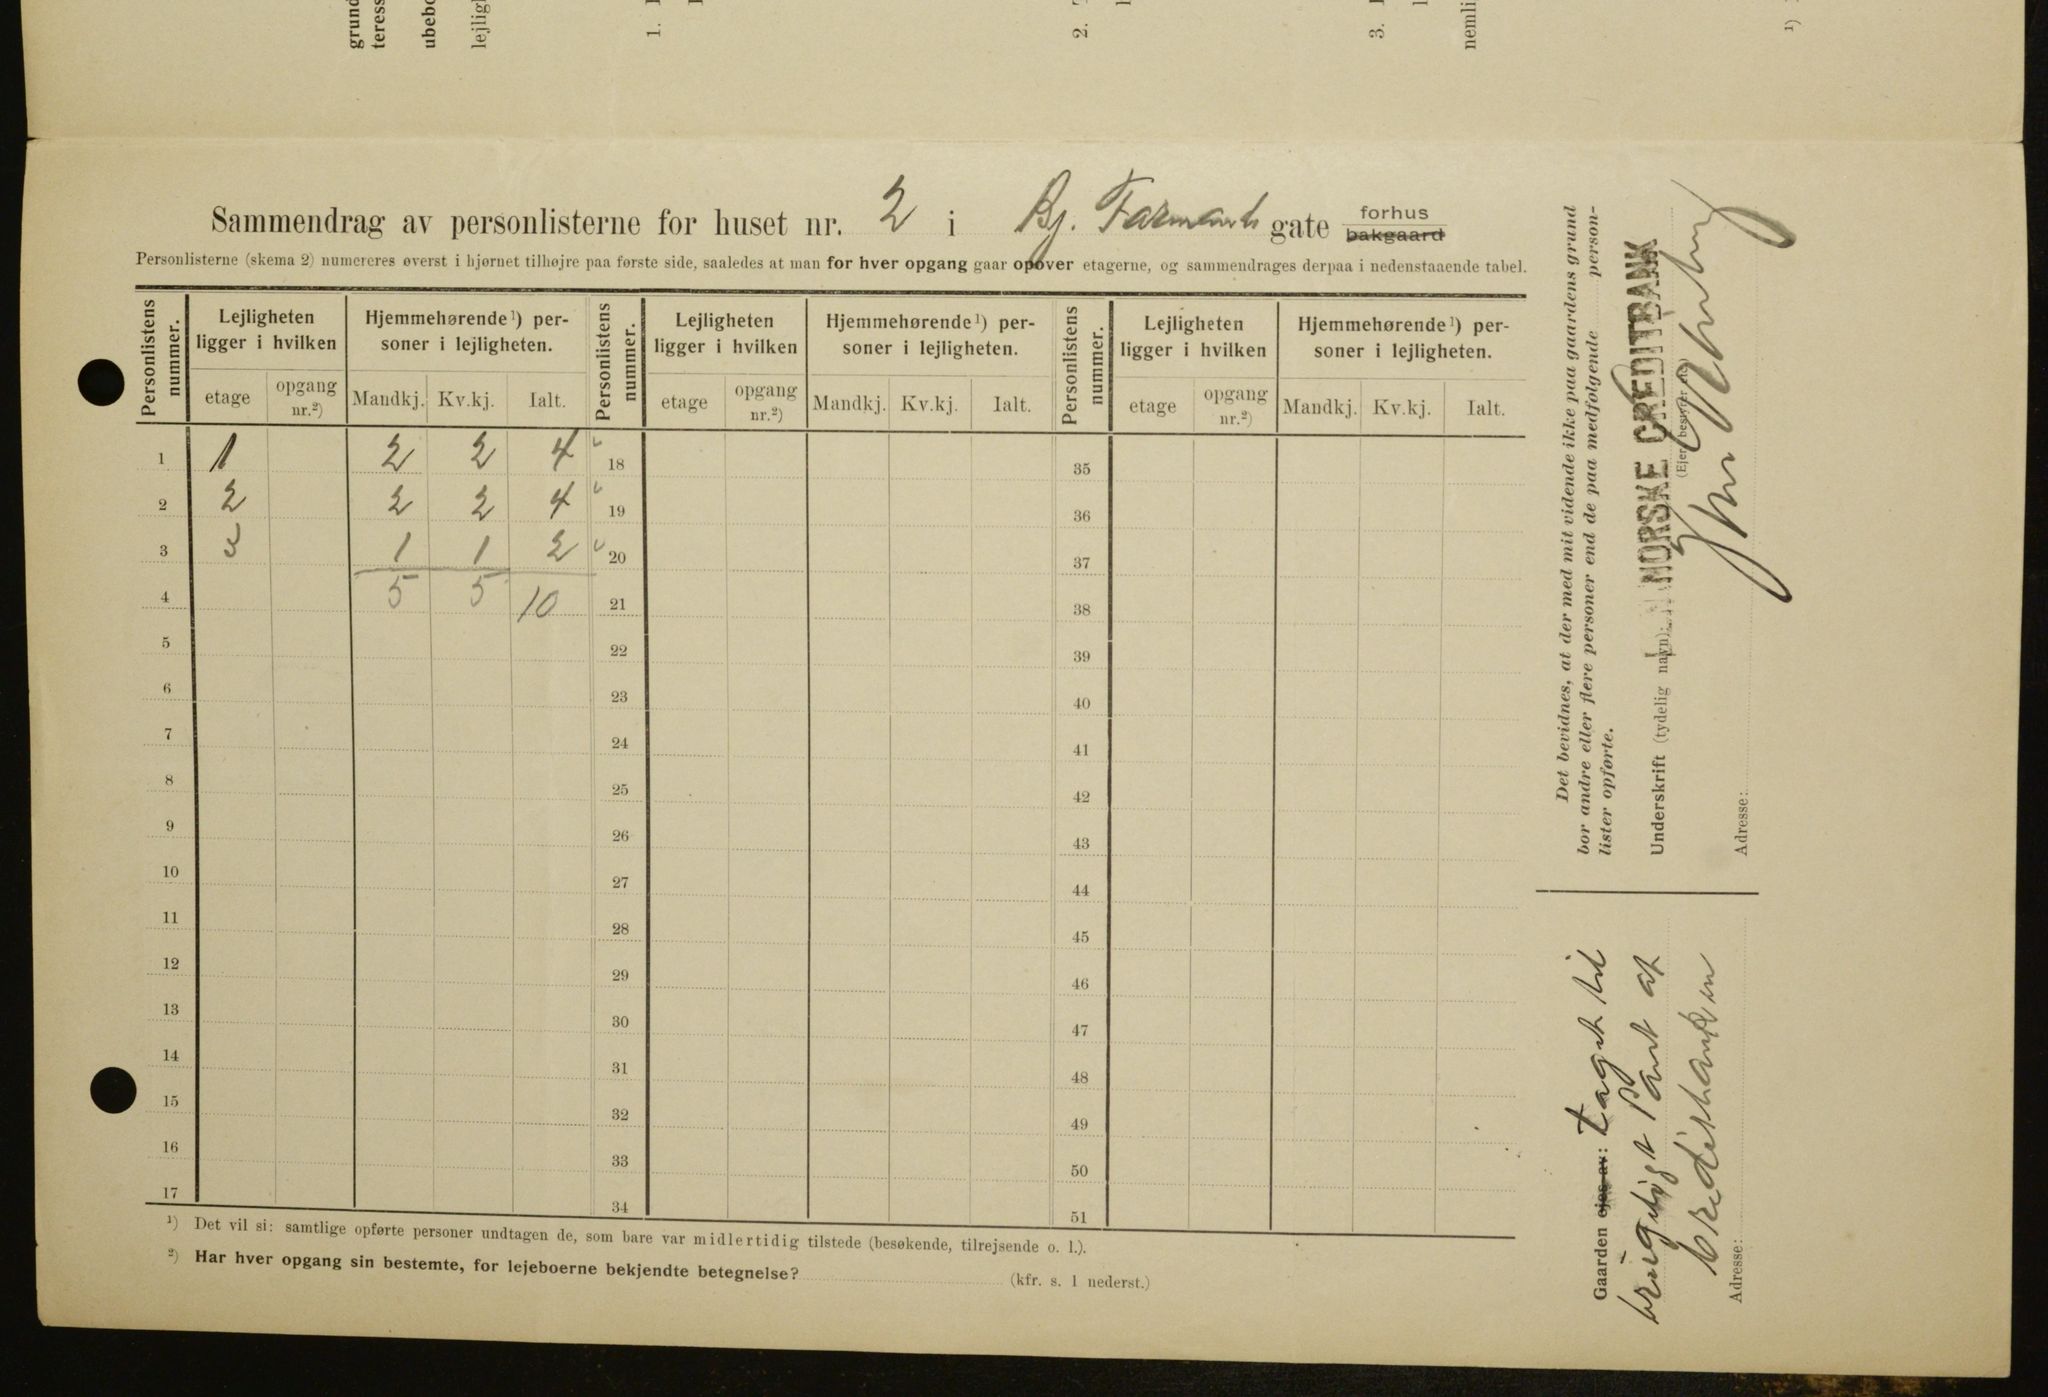 grund
teress
ubebo
lejligh
1.
2.
3.
nemli
¹)
Sammendrag av personlisterne for huset nr. 2 i Bj. Farmands gate forhus bakgaard
Personlisterne (skema 2) numereres øverst i hjørnet tilhøjre paa første side, saaledes at man for hver opgang gaar opover etagerne, og sammendrages derpaa i nedenstaaende tabel.
Personlistens nummer. Lejligheten ligger i hvilken Hjemmehørende¹) personer i lejligheten. Personlistens nummer. Lejligheten ligger i hvilken Hjemmehørende¹) personer i lejligheten. Personlistens nummer. Lejligheten ligger i hvilken Hjemmehørende¹) personer i lejligheten.
etage opgang nr.²) Mandkj. Kv.kj. Ialt. etage opgang nr.²) Mandkj. Kv.kj. Ialt. etage opgang nr.²) Mandkj. Kv.kj. Ialt.
1 1 2 2 4 18 35
2 2 2 2 4 19 36
3 3 1 1 2 20 37
4 5 5 10 21 38
5 22 39
6 23 40
7 24 41
8 25 42
9 26 43
10 27 44
11 28 45
12 29 46
13 30 47
14 31 48
15 32 49
16 33 50
17 34 51
¹) Det vil si: samtlige opførte personer undtagen de, som bare var midlertidig tilstede (besøkende, tilrejsende o. l.).
²) Har hver opgang sin bestemte, for lejeboerne bekjendte betegnelse? (kfr. s. 1 nederst.)
Det bevidnes, at der med mit vidende ikke paa gaardens grund
bor andre eller flere personer end de paa medfølgende personlister opførte.
Underskrift (tydelig navn): NORSKE CREDITBANK
(Ejer, bestyrer etc.)
Adresse:
Gaarden ejes av: taget til
brugeligt Pant af
Creditbanken
Adresse: